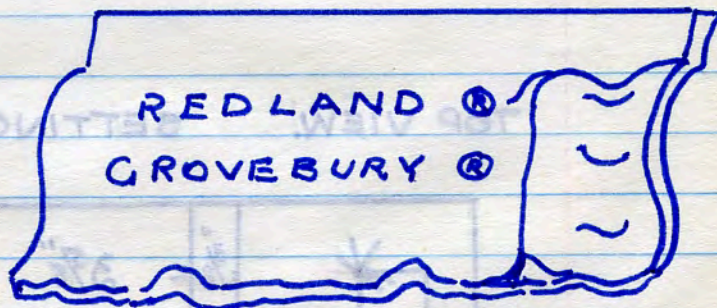 REDLAND ®
GROVEBURY ®